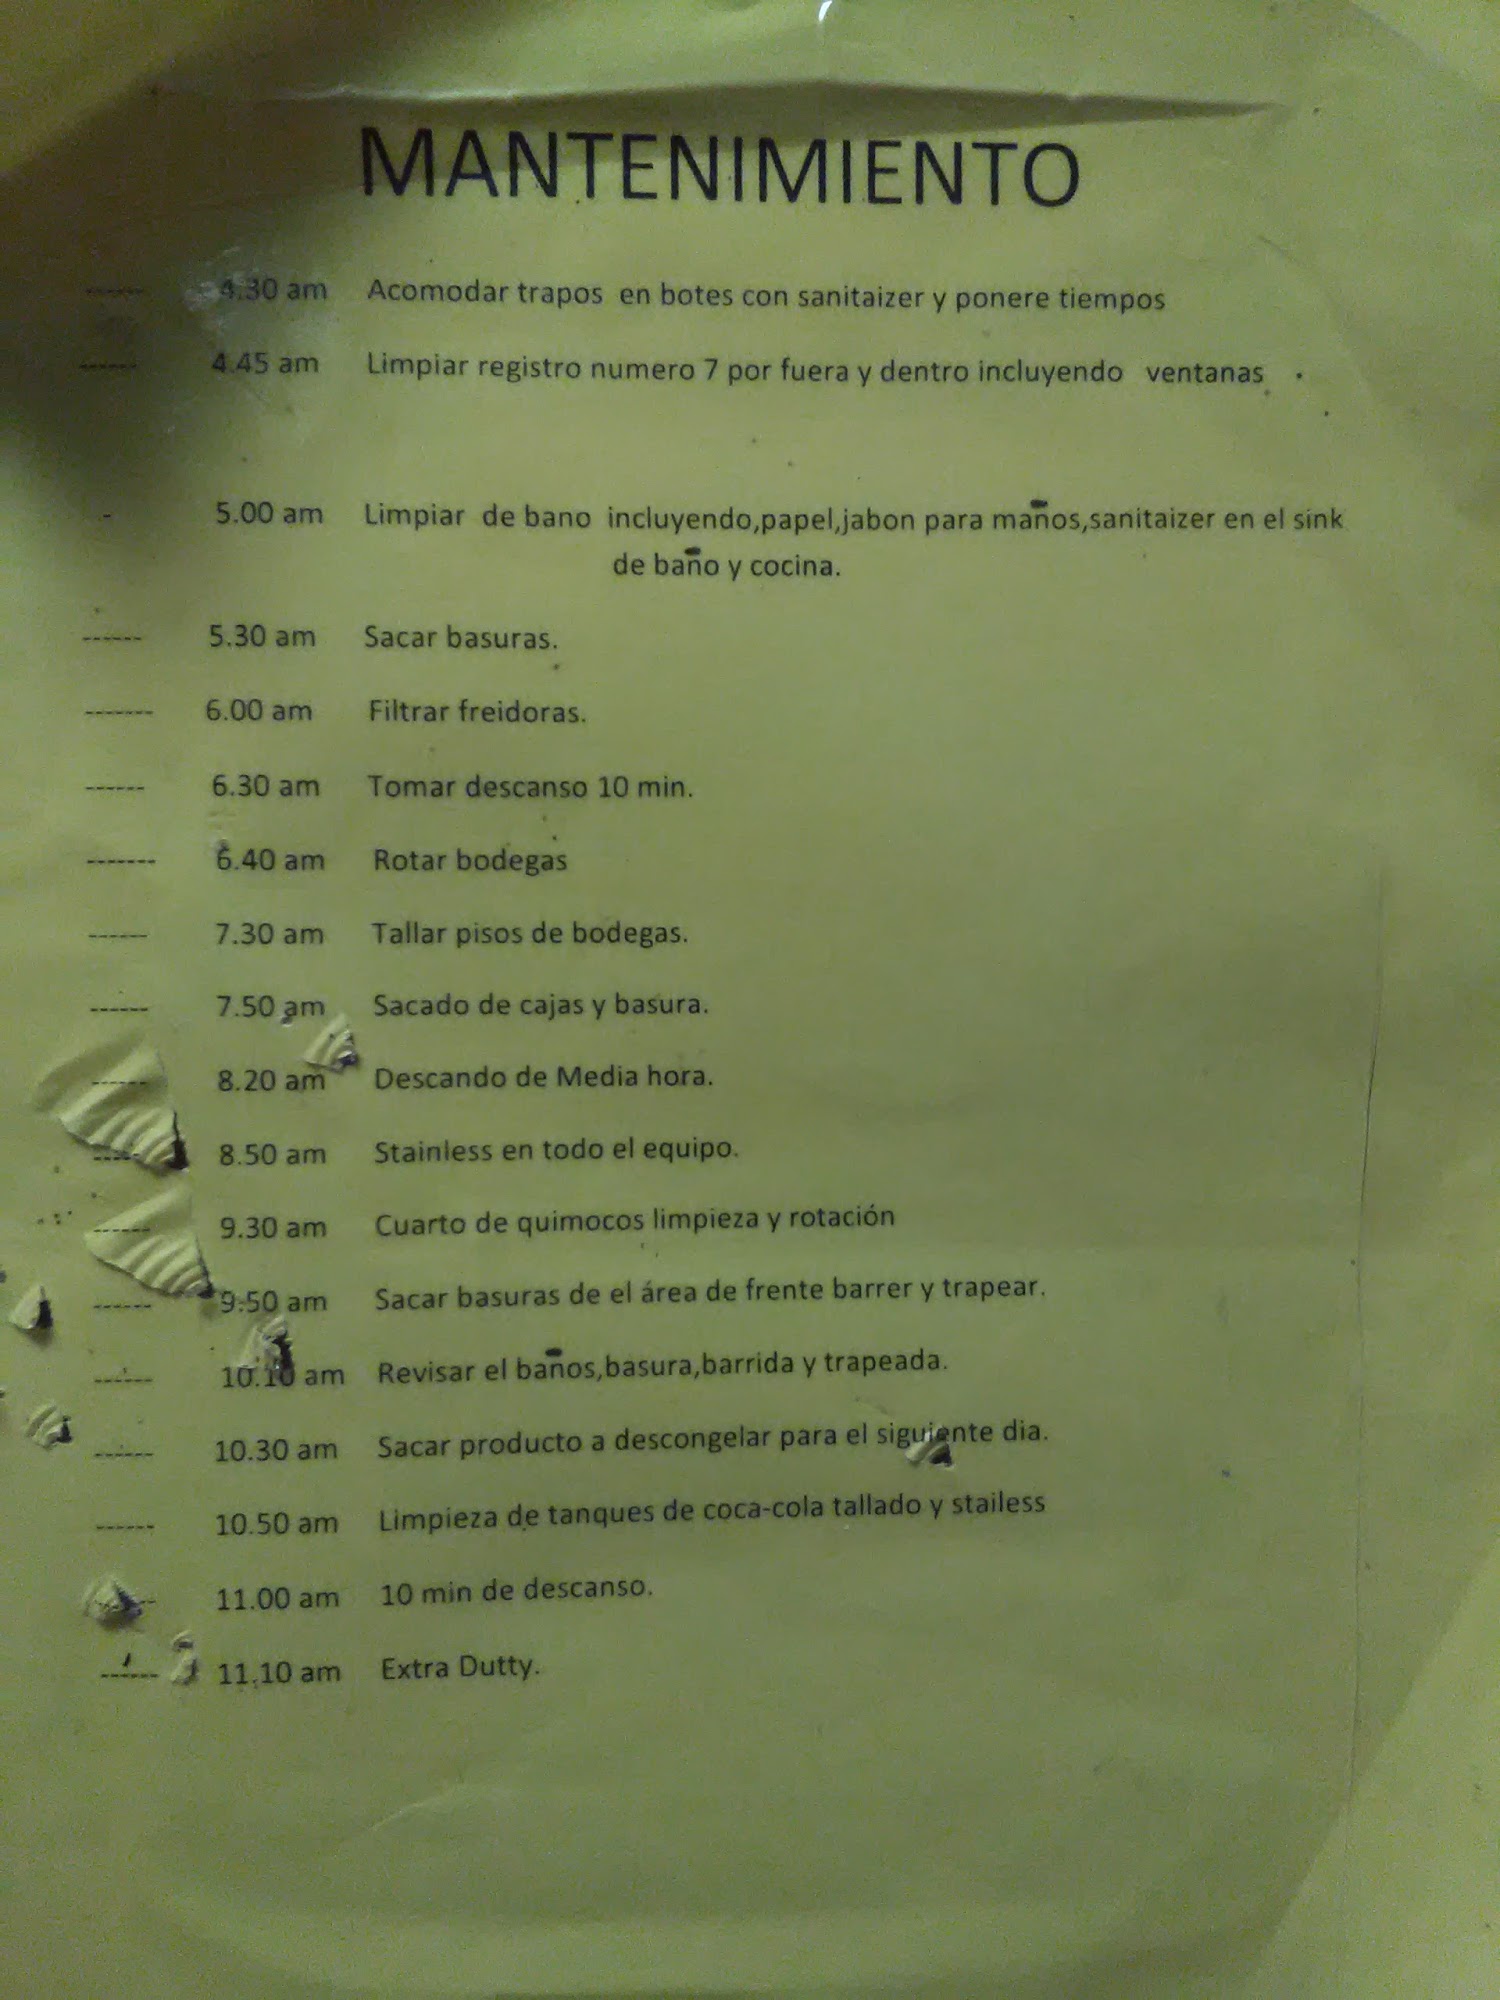 MANTENIMIENTO
------ 4.30 am Acomodar trapos en botes con sanitaizer y ponere tiempos
------ 4.45 am Limpiar registro numero 7 por fuera y dentro incluyendo ventanas .
- 5.00 am Limpiar de bano incluyendo,papel,jabon para maños,sanitaizer en el sink
de baño y cocina.
------ 5.30 am Sacar basuras.
------- 6.00 am Filtrar freidoras.
------ 6.30 am Tomar descanso 10 min.
------- 6.40 am Rotar bodegas
------ 7.30 am Tallar pisos de bodegas.
------ 7.50 am Sacado de cajas y basura.
------ 8.20 am Descando de Media hora.
------ 8.50 am Stainless en todo el equipo.
------ 9.30 am Cuarto de quimocos limpieza y rotación
------ 9.50 am Sacar basuras de el área de frente barrer y trapear.
------ 10.10 am Revisar el baños,basura,barrida y trapeada.
------ 10.30 am Sacar producto a descongelar para el siguiente dia.
------ 10.50 am Limpieza de tanques de coca-cola tallado y stailess
------ 11.00 am 10 min de descanso.
------ 11.10 am Extra Dutty.